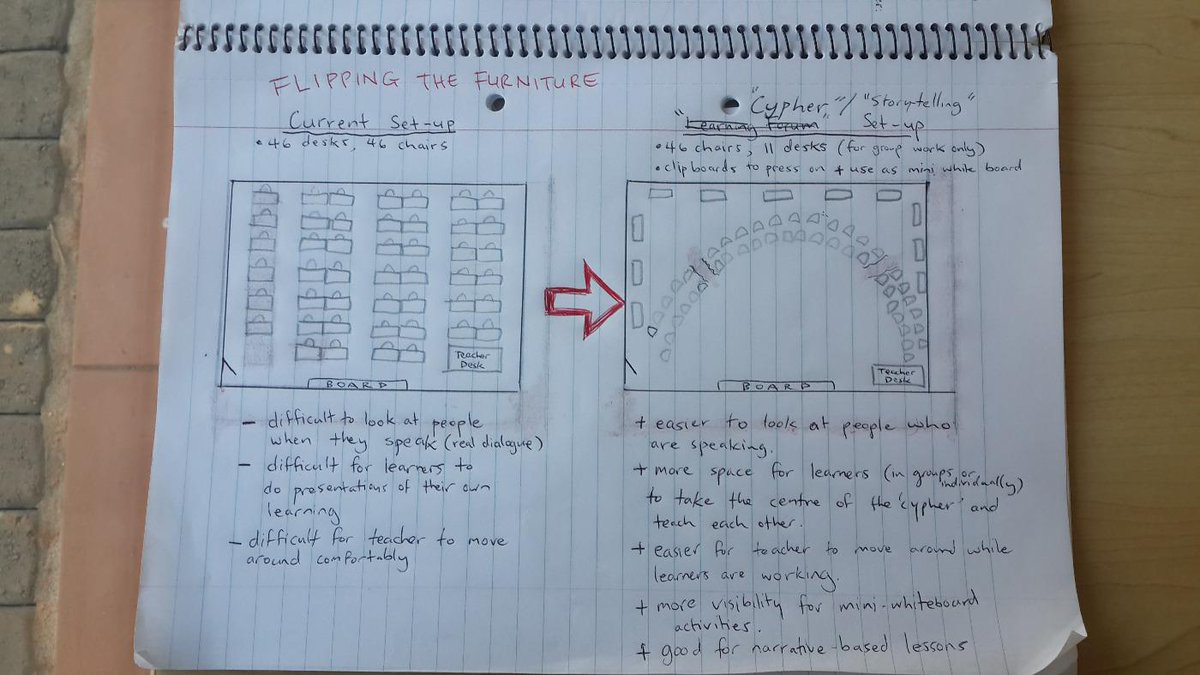 FLIPPING THE FURNITURE
Current Set-up
• 46 desks, 46 chairs
TEACHER
DESK
BOARD
- difficult to look at people
when they speak (real dialogue)
- difficult for learners to
do presentations of their own
learning
- difficult for teacher to move
around comfortably
"Cypher"/ "Storytelling"
"Learning Forum" Set-up
• 46 chairs, 11 desks (for group work only)
• clipboards to press on + use as mini white board
TEACHER
DESK
BOARD
+ easier to look at people who
are speaking.
+ more space for learners (in groups or individually)
to take the centre of the 'cypher' and
teach each other.
+ easier for teacher to move around while
learners are working.
+ more visibility for mini-whiteboard
activities.
+ good for narrative-based lessons